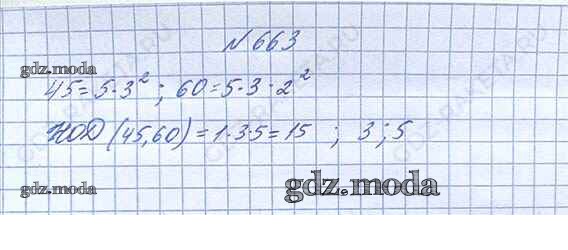 № 663
gdz.moda
45 = 5·3²; 60 = 5·3·2²
НОД (45,60) = 1·3·5 = 15 ; 3; 5
gdz.moda